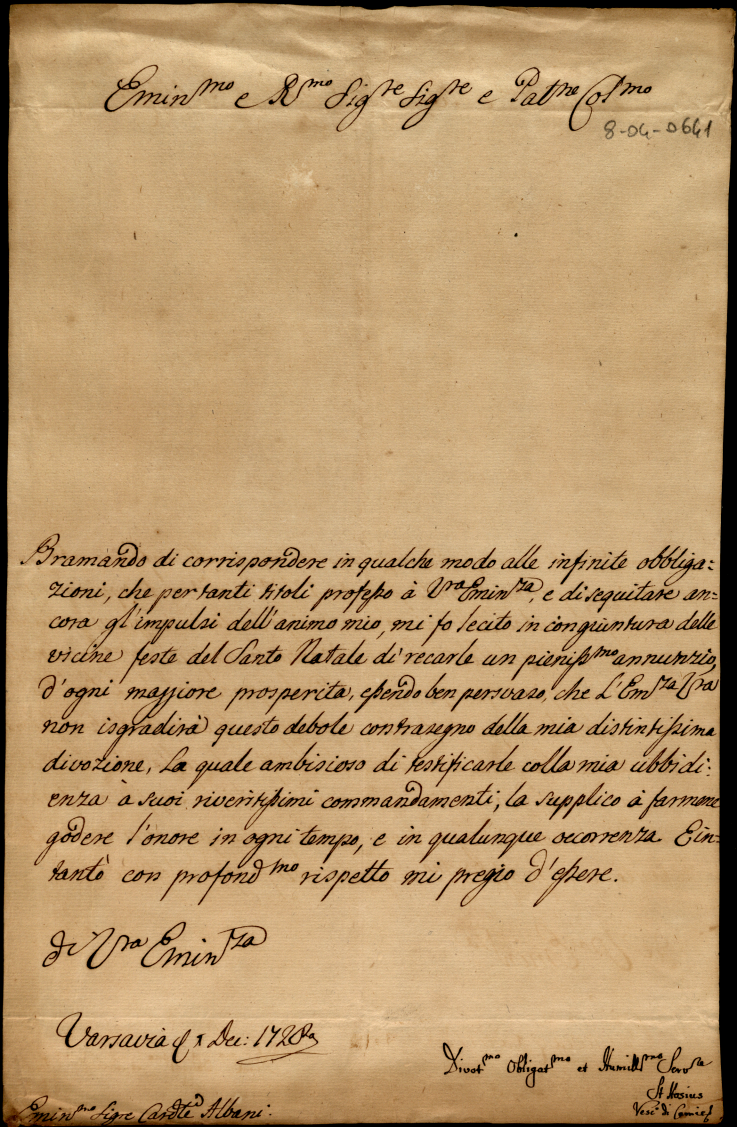 Emin^mo e R^mo Sig^re Sig^re e Pat^ne Col^mo
8-04-0641
Bramando di corrispondere in qualche modo alle infinite obbliga=
zioni, che per tanti titoli professo à Vra Emin^za, e di sequitare an=
cora gl'impulsi dell'animo mio, mi fo lecito in congiuntura delle
vicine feste del Santo Natale di recarle un pieniss^mo annunzio
d'ogni maggiore prosperità, essendo ben persuaso, che L'Em^za Vra
non isgradirà questo debole contrasegno della mia distintissima
divozione, La quale ambisioso di testificarle colla mia ubbidi:
enza à suoi riveritissimi commandamenti, la supplico à farmene
godere l'onore in ogni tempo, e in qualunque occorrenza E in=
tantò con profond^mo rispetto mi pregio d'essere.
di Vra Emin^za
Varsavia Dec: 1728
Divot^mo Obligat^mo et Humill^mo Serv^re
St Hosius
Vesc^o di
Emin^mo Sigre Cardle Albani: